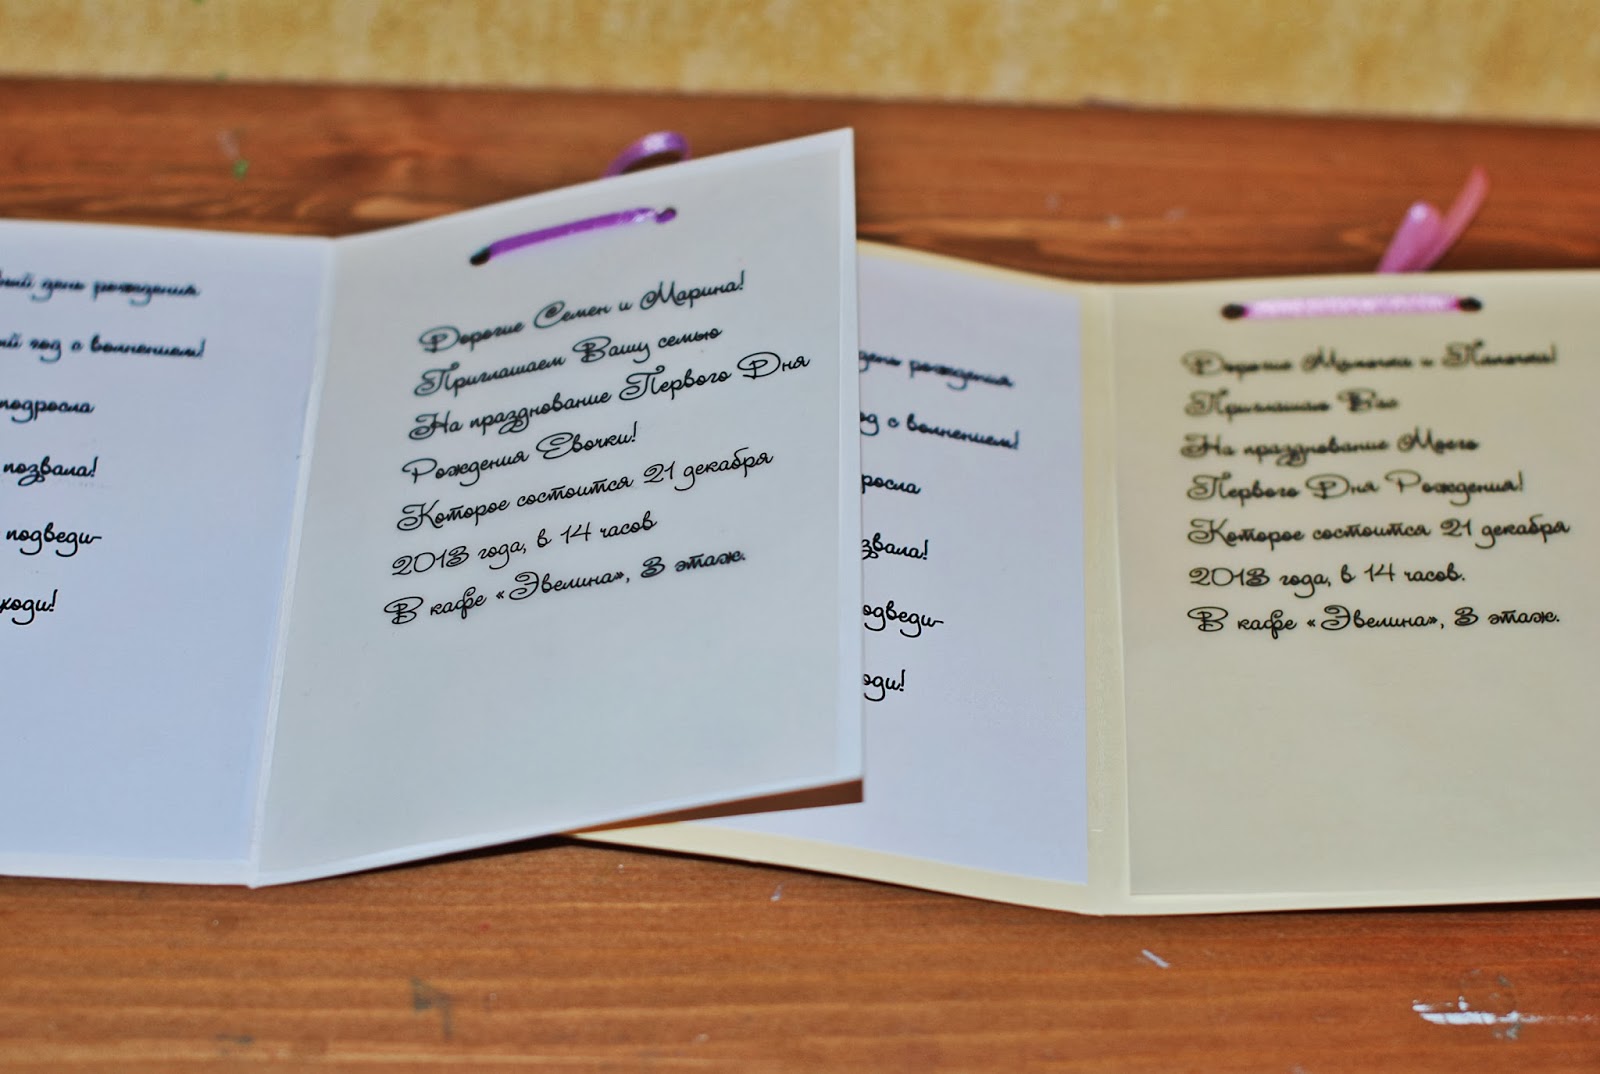 день рождения
год с волнением!
подросла
позвала!
подведи-
Дорогие Семен и Марина!
Приглашаем Вашу семью
На празднование Первого Дня
Рождения Евочки!
Которое состоится 21 декабря
2013 года, в 14 часов
В кафе «Эвелина», 3 этаж.
день рождения
с волнением!
Дорогие Мамочка и Папочка!
Приглашаю Вас
На празднование Моего
Первого Дня Рождения!
Которое состоится 21 декабря
2013 года, в 14 часов.
В кафе «Эвелина», 3 этаж.